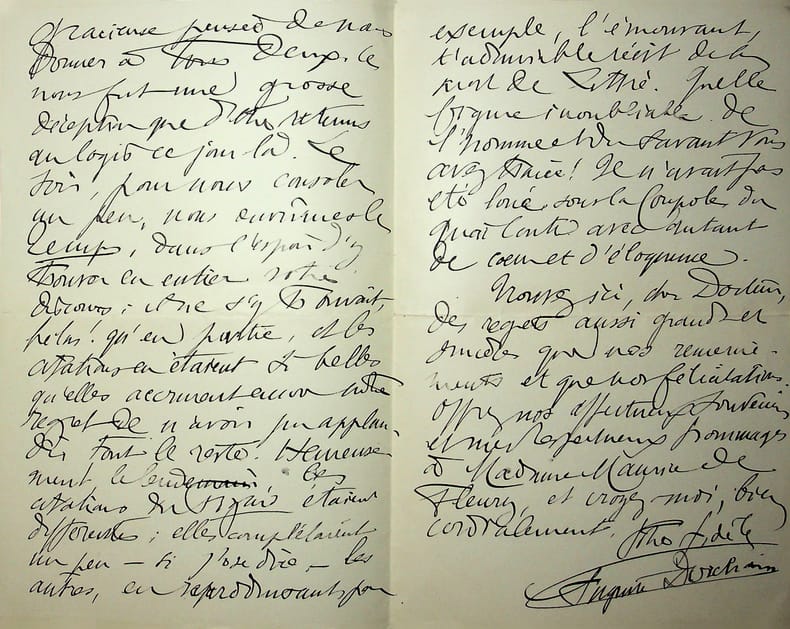 gracieuse pensée de nous
donner à tous deux. Ce
nous fut une grosse
déception que d'être retenus
au logis ce jour là. Le
soir, pour nous consoler
un peu, nous ouvrîmes le
Temps, dans l'espoir d'y
trouver en entier votre
discours ; il ne s'y trouvait,
hélas ! qu'en partie, et les
citations en étaient si belles
qu'elles accrurent encor notre
regret de n'avoir pu applau-
dir tout le reste. Heureuse-
ment le lendemain, les
citations du Figaro étaient
différentes ; elles complétaient
un peu – si j'ose dire – les
autres, en reproduisant, par
exemple, l'émouvant,
l'admirable récit de la
mort de Littré. Quelle
figure inoubliable de
l'homme et du savant vous
avez tracée ! Je n'avait pas
été loué sous la Coupole du
quai Conti avec autant
de cœur et d'éloquence.
ici, cher Docteur,
des regrets aussi grands et
sincères que nos remercie-
ments et que nos félicitations.
Offrez nos affectueux souvenirs
et mes respectueux hommages
à Madame Maurice de
Fleury, et croyez-moi, bien
cordialement,
Vtre fidèle
Auguste Dorchain